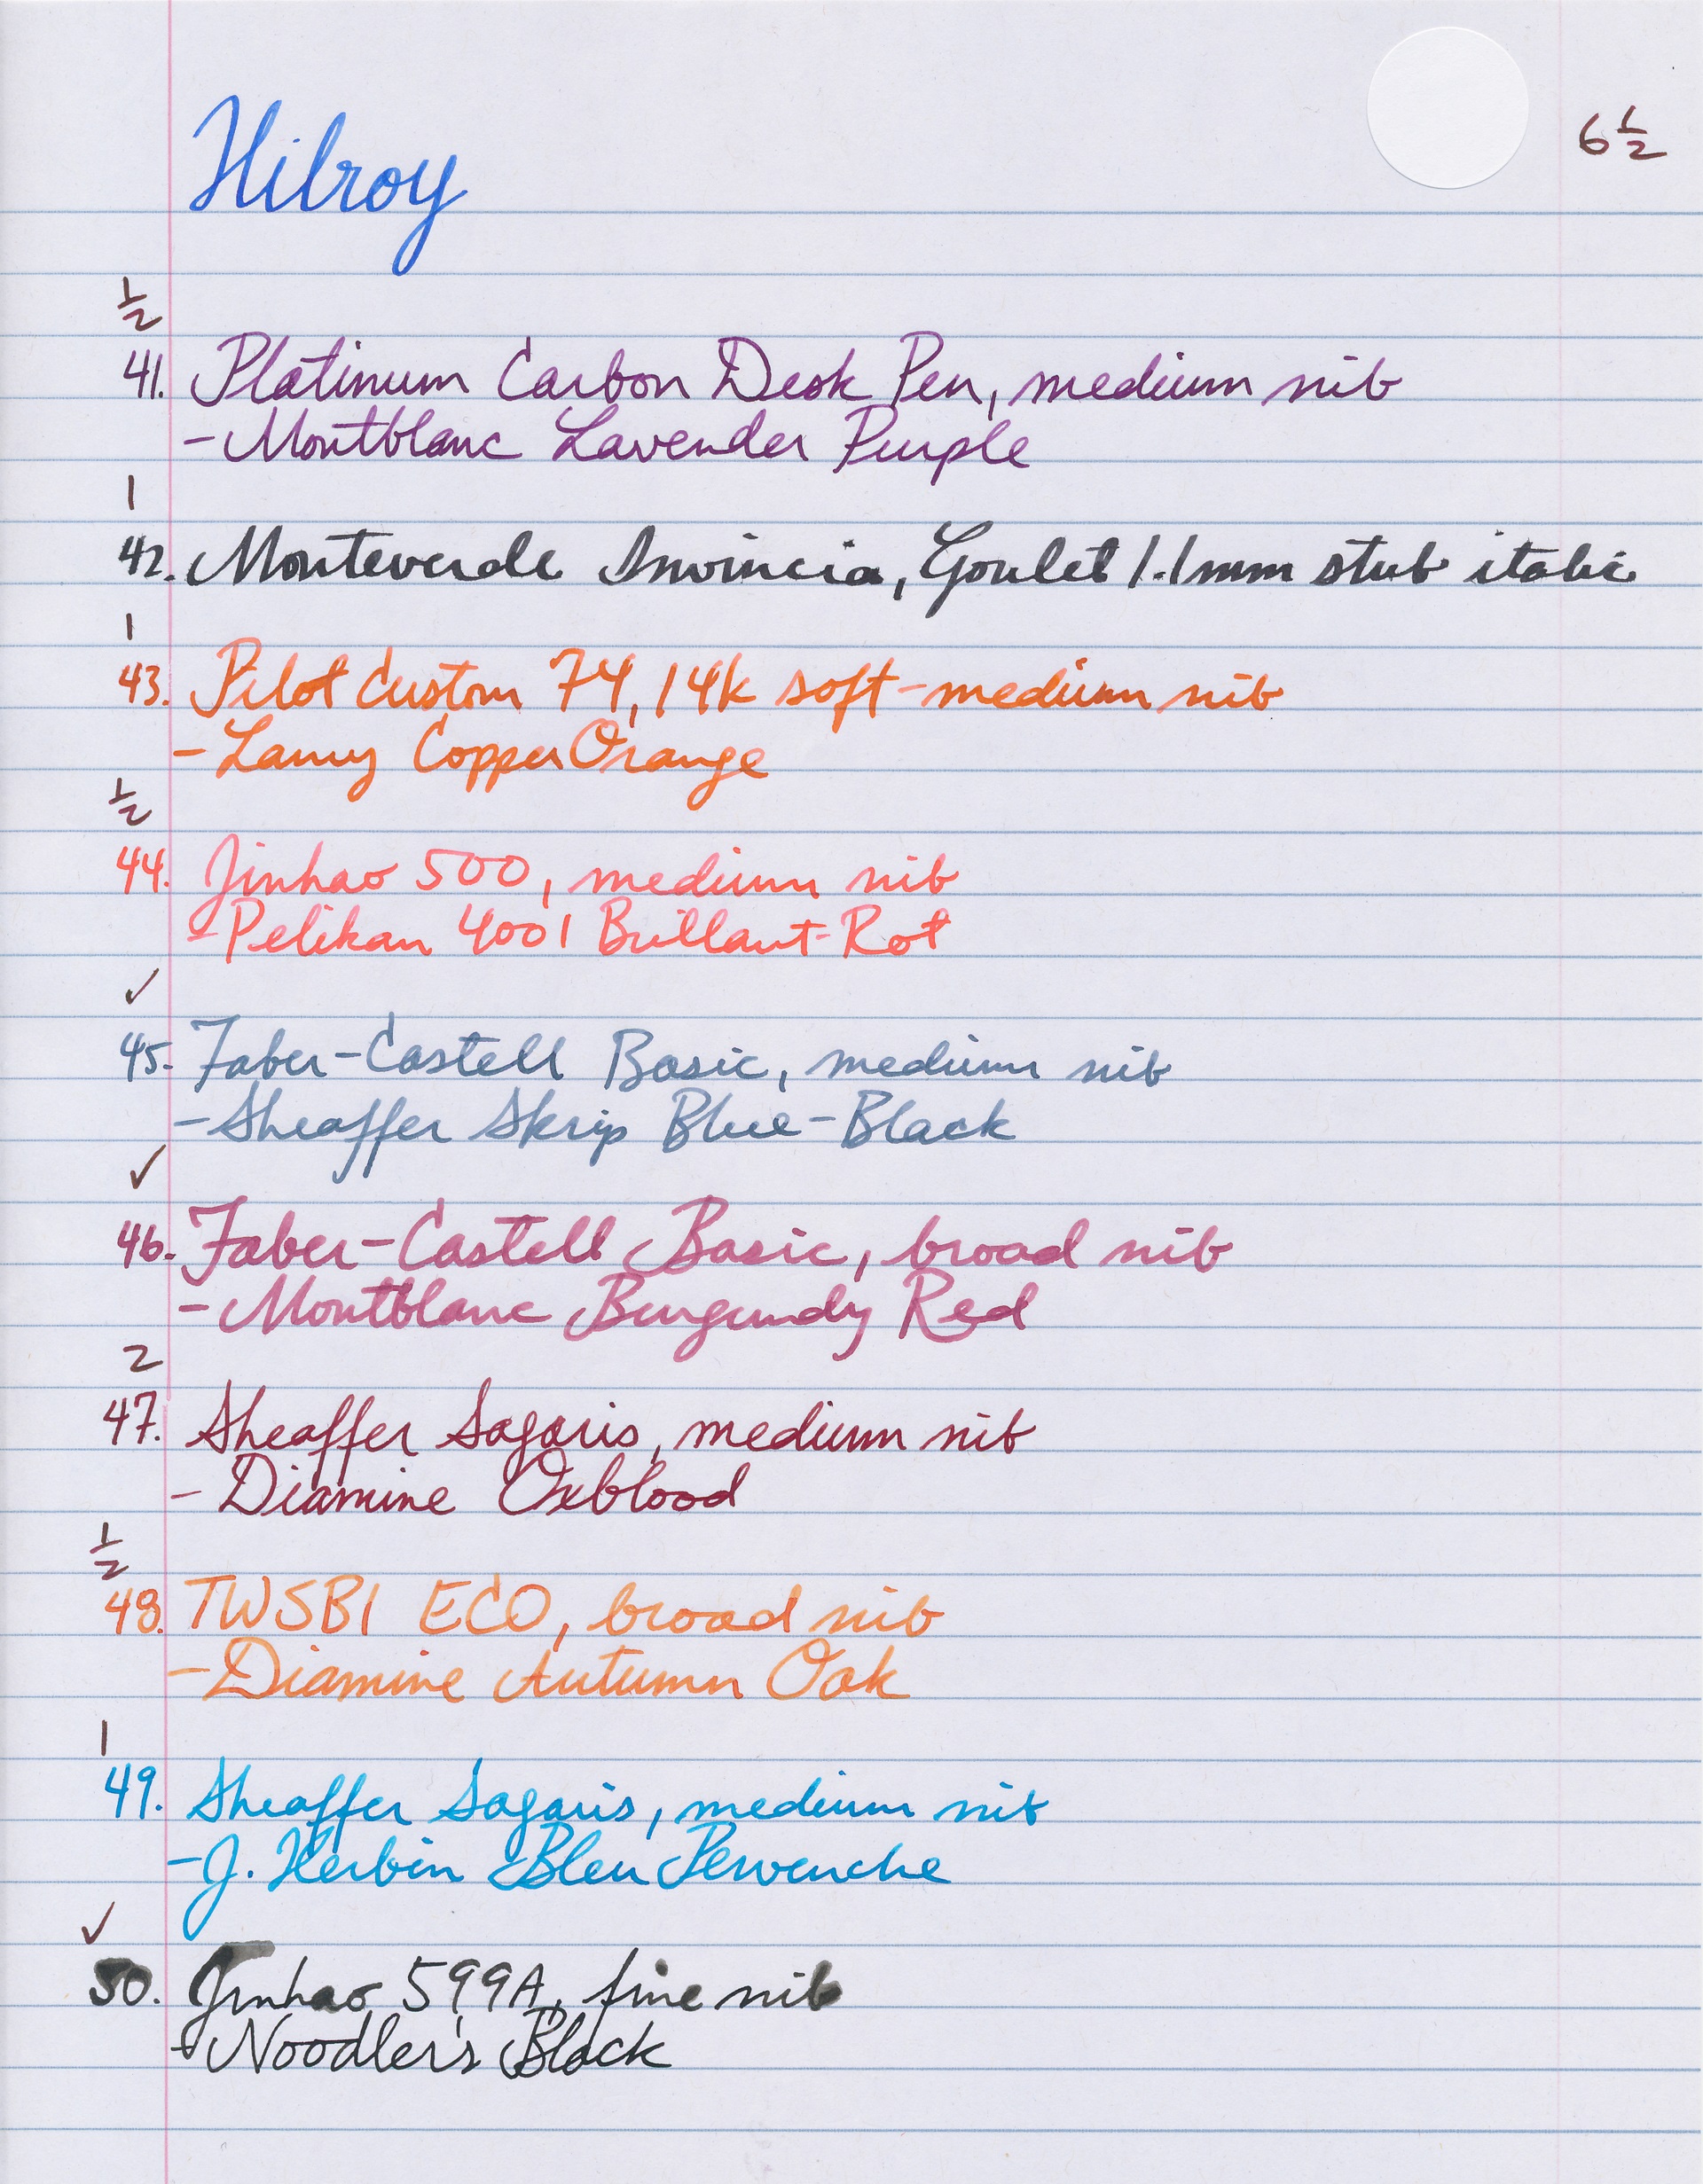 6 1/2
Hilroy
1/2
41. Platinum Carbon Desk Pen, medium nib
- Montblanc Lavender Purple
1
42. Monteverde Invincia, Goulet 1.1mm stub italic
1
43. Pilot Custom 74, 14k soft-medium nib
- Lamy Copper Orange
1/2
44. Jinhao 500, medium nib
- Pelikan 4001 Brillant-Rot
✓
45. Faber-Castell Basic, medium nib
- Sheaffer Skrip Blue-Black
✓
46. Faber-Castell Basic, broad nib
- Montblanc Burgundy Red
2
47. Sheaffer Sagaris, medium nib
- Diamine Oxblood
1/2
48. TWSBI ECO, broad nib
- Diamine Autumn Oak
1
49. Sheaffer Sagaris, medium nib
- J. Herbin Bleu Pervenche
✓
50. Jinhao 599A, fine nib
- Noodler's Black